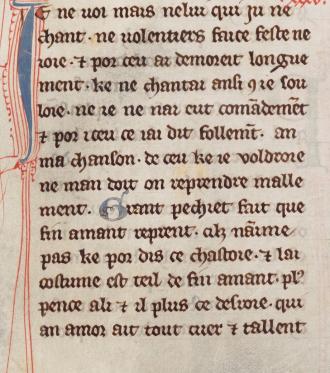 E ne uoi mais nelui qui iu ne
chant · ne uolentiers faice feste ne
ioie · ⁊ por ceu ai demoreit longue
ment · ke ne chantai ansi ꝯ ie sou
loie · ne ie ne nai eut comādemēt
⁊ por iceu ce iai dit follemt̄ · an
ma chanson · de ceu ke ie voldroie
ne man doit on reprendre malle
ment · Grant pechiet fait que
fin amant reprent · cil̵z nāīme
pas ke por dis ce chastoie · ⁊ lai
costume est teil de fin amant · plꝰ
pence a li ⁊ il plus ce desroie · qui
an amor ait tout cuer ⁊ tallent